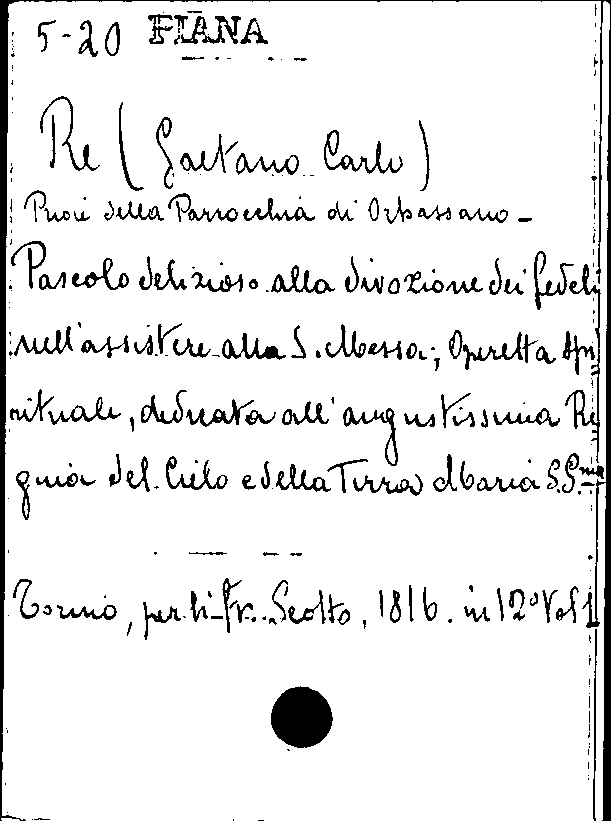 5-20 FIANA
Re (Gaetano Carlo)
della Parrocchia di Orbassano -
Pascolo delizioso alla divozione dei fedeli
nell'assistere alla S. Messa; Operetta spi
rituale, dedicata all'augustissima Re
gina del Cielo e della Terra Maria S.S.ma
Torino, per li Fr. Scotto, 1816. in 12° Vol 1